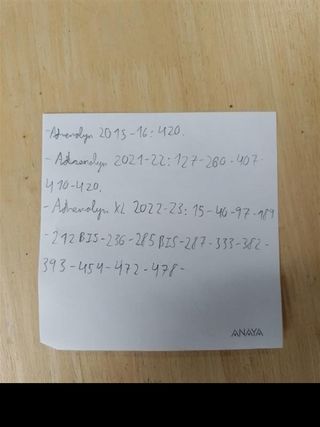 -Adrenalyn 2015-16-420.
-Adrenalyn 2021-22: 127-260-407-
410-420.
-Adrenalyn XL 2022-23: 15-40-97-189
-212BIS-236-285BIS-287-333-382-
393-454-472-478-
ANAYA